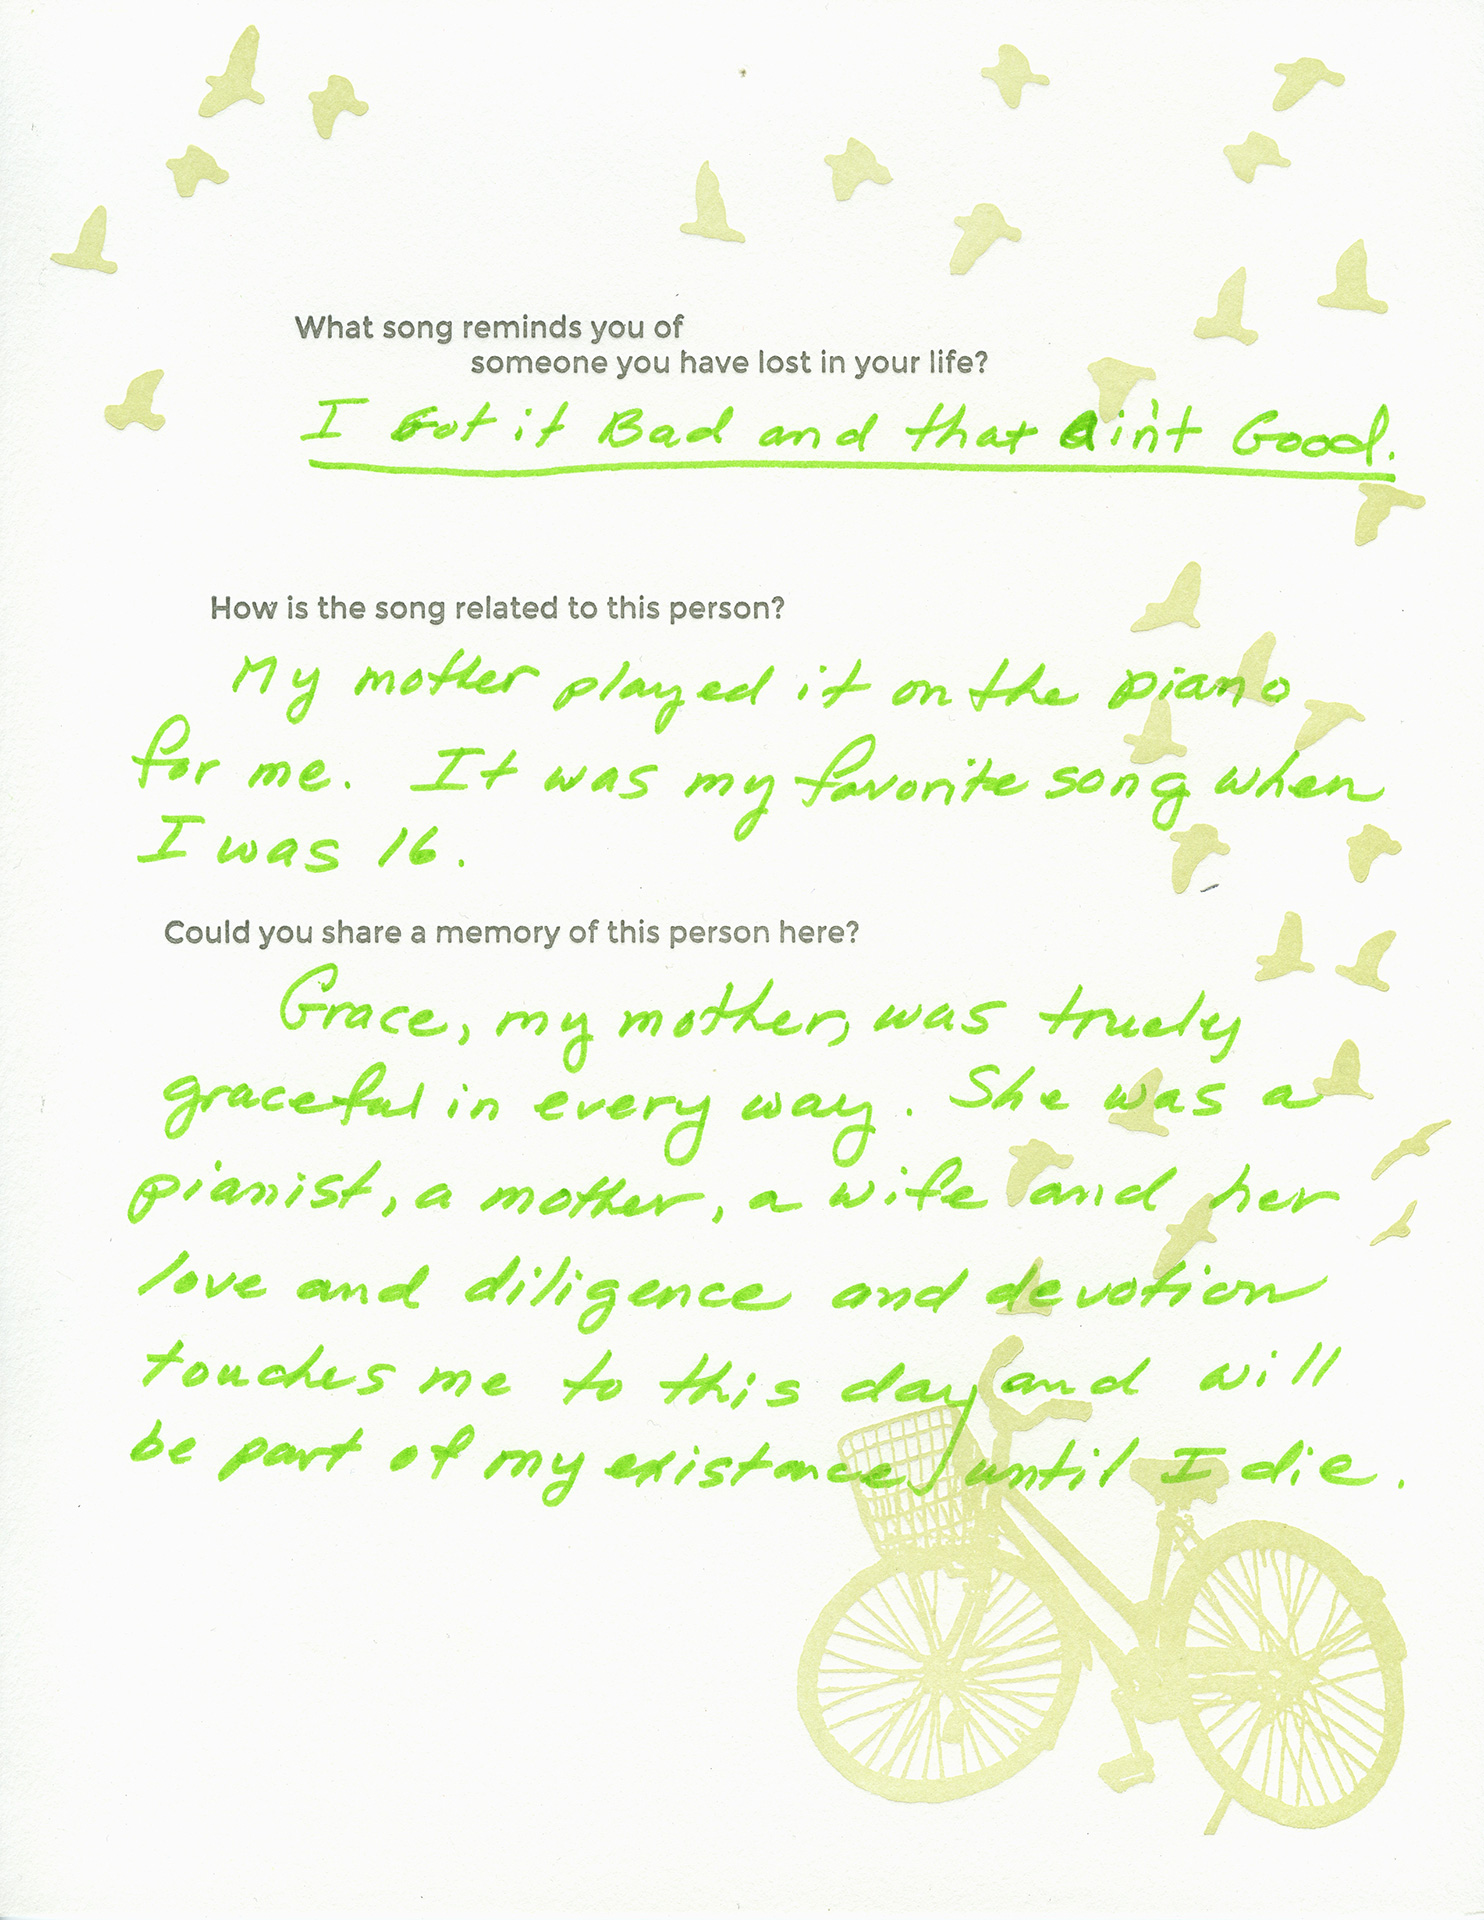 What song reminds you of
someone you have lost in your life?
I Got it Bad and that ain't Good.
How is the song related to this person?
My mother played it on the piano
for me. It was my favorite song when
I was 16.
Could you share a memory of this person here?
Grace, my mother, was truely
graceful in every way. She was a
pianist, a mother, a wife and her
love and diligence and devotion
touches me to this day and will
be part of my existance until I die.